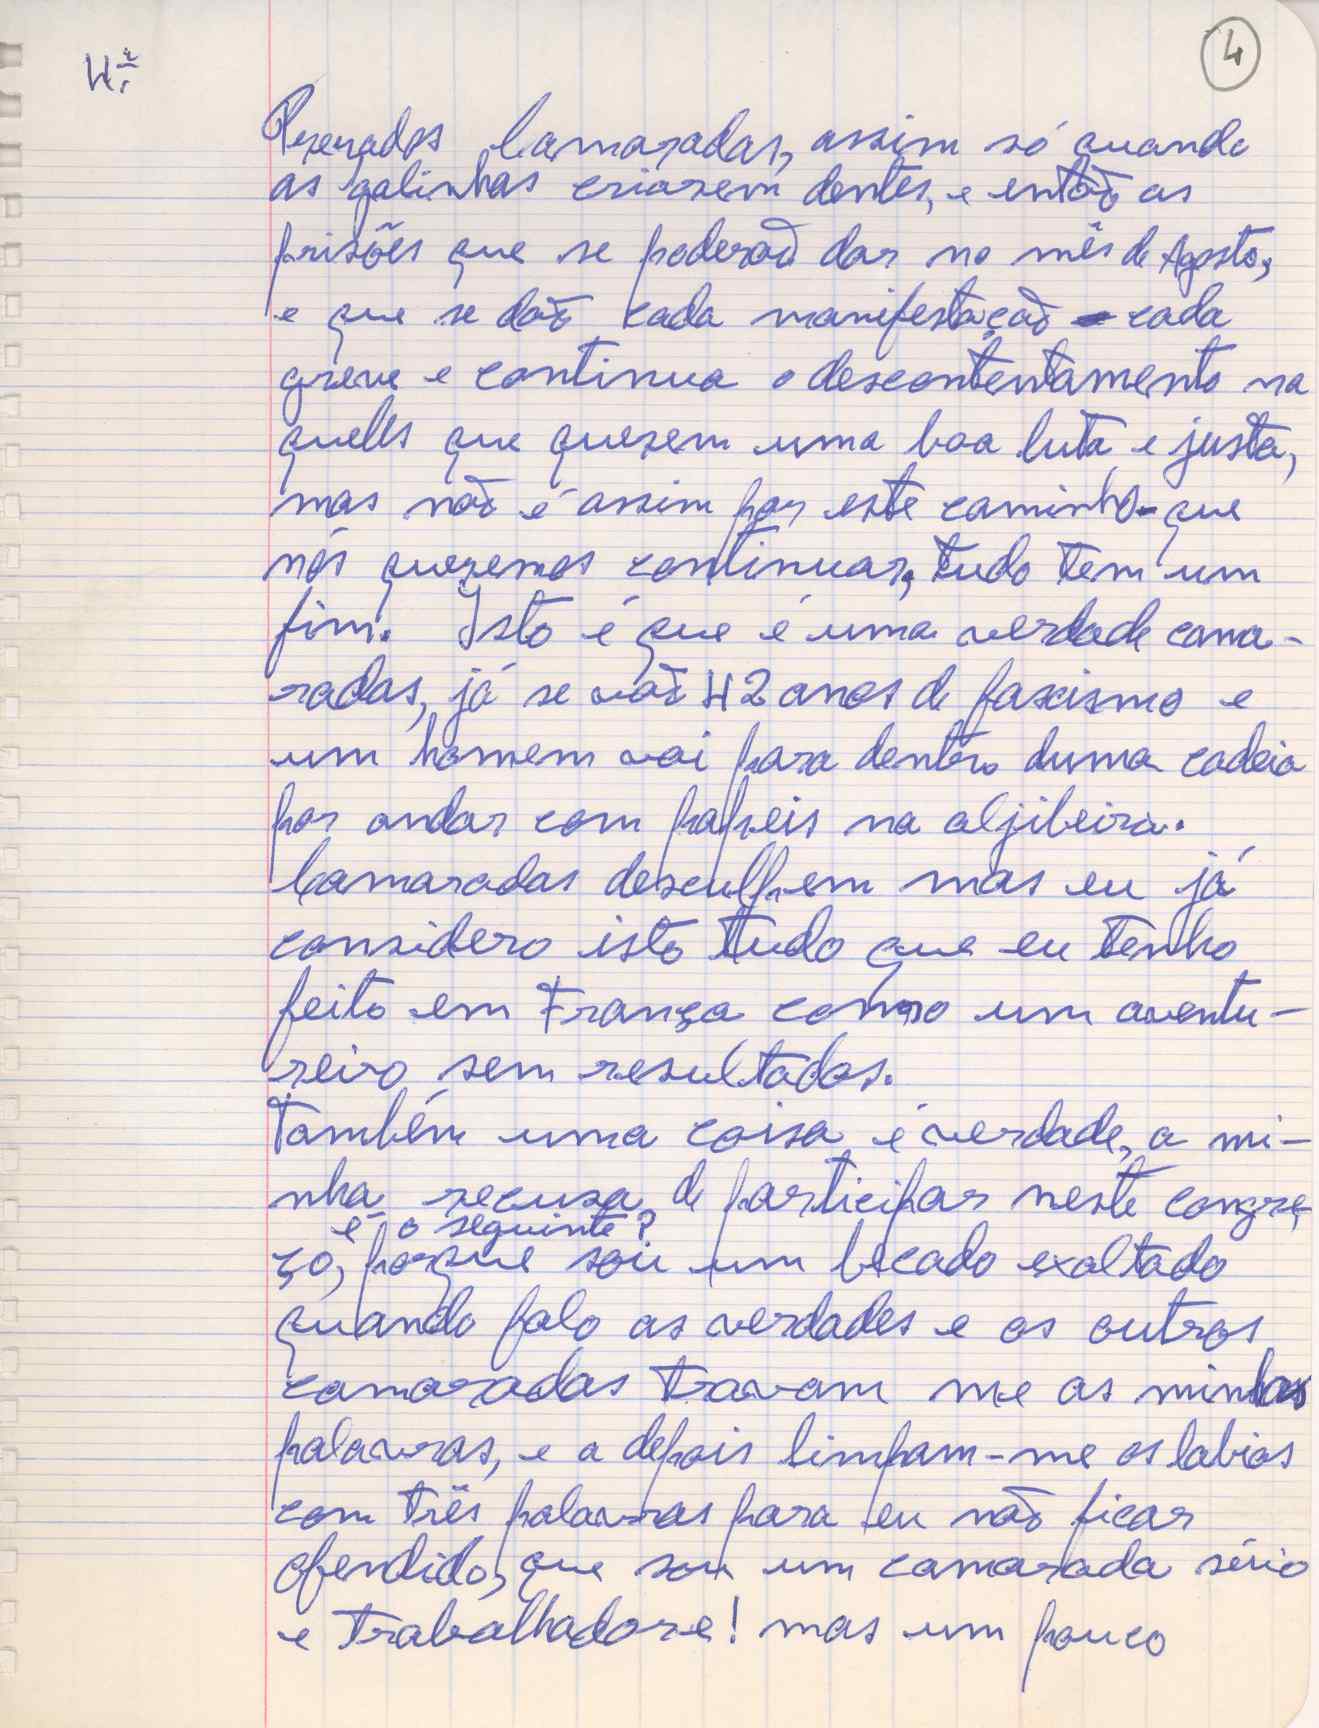 4
Presados Camaradas, assim só quando
as galinhas criarem dentes, e então as
prisões que se poderaõ dar no mês de Agosto,
e que se daõ cada manifestaçaõ cada
greve e continua o descontentamento na
quells que querem uma boa luta e justa,
mas naõ é assim por este caminho que
nós queremos continuar, tudo tem um
fim. Isto é que é uma verdade cama-
radas, já se vaõ 42 anos de fascismo e
um homem vai para dentro duma cadeia
por andar com papeis na aljibeira.
Camaradas desculpem mas eu já
considero isto tudo que eu tenho
feito em França como um aventu-
reiro sem resultados.
Também uma coisa é verdade, a mi-
nha recusa de participar neste congre-
é o seguinte?
ço, porque sou um bocado exaltado
quando falo as verdades e os outros
camaradas travam me as minhas
palavras, e a depois limpam-me os labios
com três palavras para eu naõ ficar
ofendido, que sou um camarada sério
e trabalhadore! mas um pouco